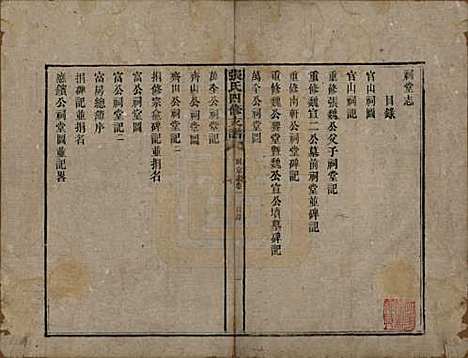 祠堂志
目錄
官山祠圖
官山祠記
重修張魏公父子祠堂記
重修魏宣二公墓前祠堂並碑記
重修南軒公祠堂記
重修魏公興堂暨魏公宣公墳墓碑記
萬全公祠堂記
張氏四修族譜
目錄
萬全公祠堂圖
齊山公祠堂圖
齊田公祠堂記二
捐修宗堂碑記並捐名
富公祠堂記二
富公祠堂記
富房總薄序
捐碑記並捐名
應鑌公祠堂圖並記畧